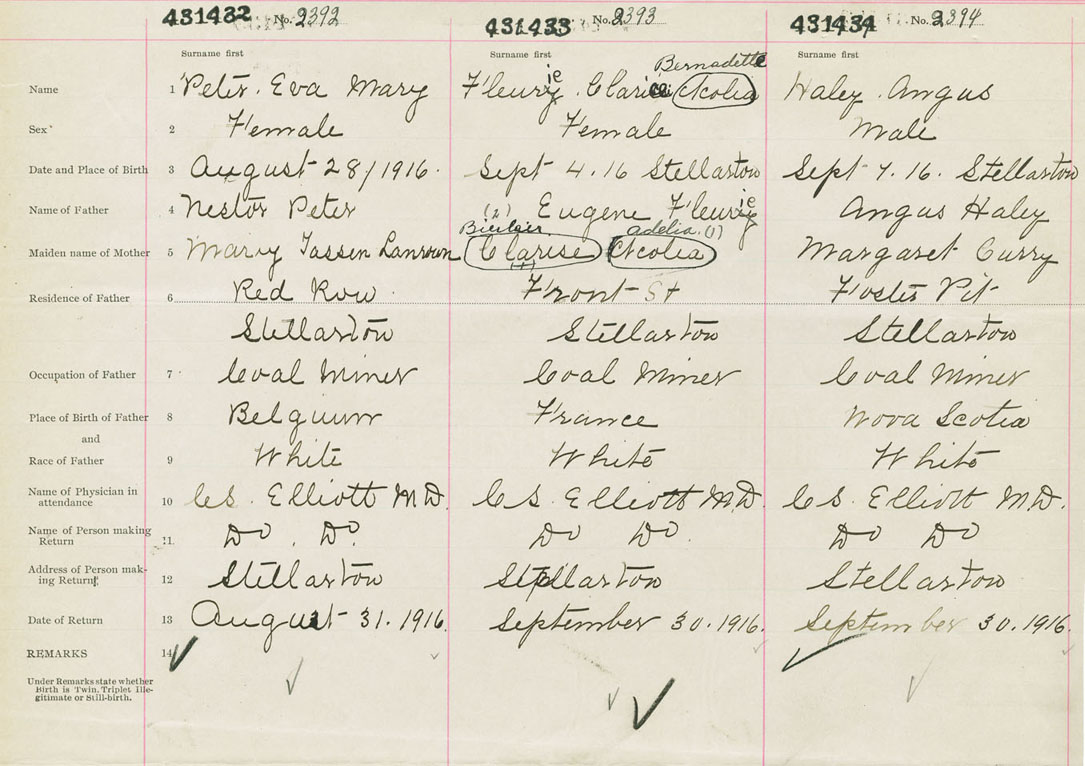 431432 No. 2392 431433 No. 2393 431434 No. 2394
Surname first Surname first Surname first
Bernadette
Name 1 Peter. Eva Mary Fleury ie. Clarice Acolia Haley. Angus
Sex 2 Female Female Male
Date and Place of Birth 3 August 28/1916. Sept 4.16 Stellarton Sept 7.16. Stellarton
Name of Father 4 Nestor Peter Eugene Fleury ie Angus Haley
(2) Adelia (1)
Maiden name of Mother 5 Mary Clarise Acolia Margaret Curry
(1)
Residence of Father 6 Red Row Front St Foster Pit
Stellarton Stellarton Stellarton
Occupation of Father 7 Coal Miner Coal Miner Coal Miner
Place of Birth of Father 8 Belgium France Nova Scotia
and
Race of Father 9 White White White
Name of Physician in
attendance 10 C S. Elliott M.D. C S. Elliott M.D. C S. Elliott M.D.
Name of Person making
Return 11. Do. Do. Do Do. Do Do
Address of Person mak-
ing Return 12 Stellarton Stellarton Stellarton
Date of Return 13 August 31. 1916. September 30. 1916. September 30. 1916.
REMARKS 14
Under Remarks state whether
Birth is Twin, Triplet Ille-
gitimate or Still-birth.